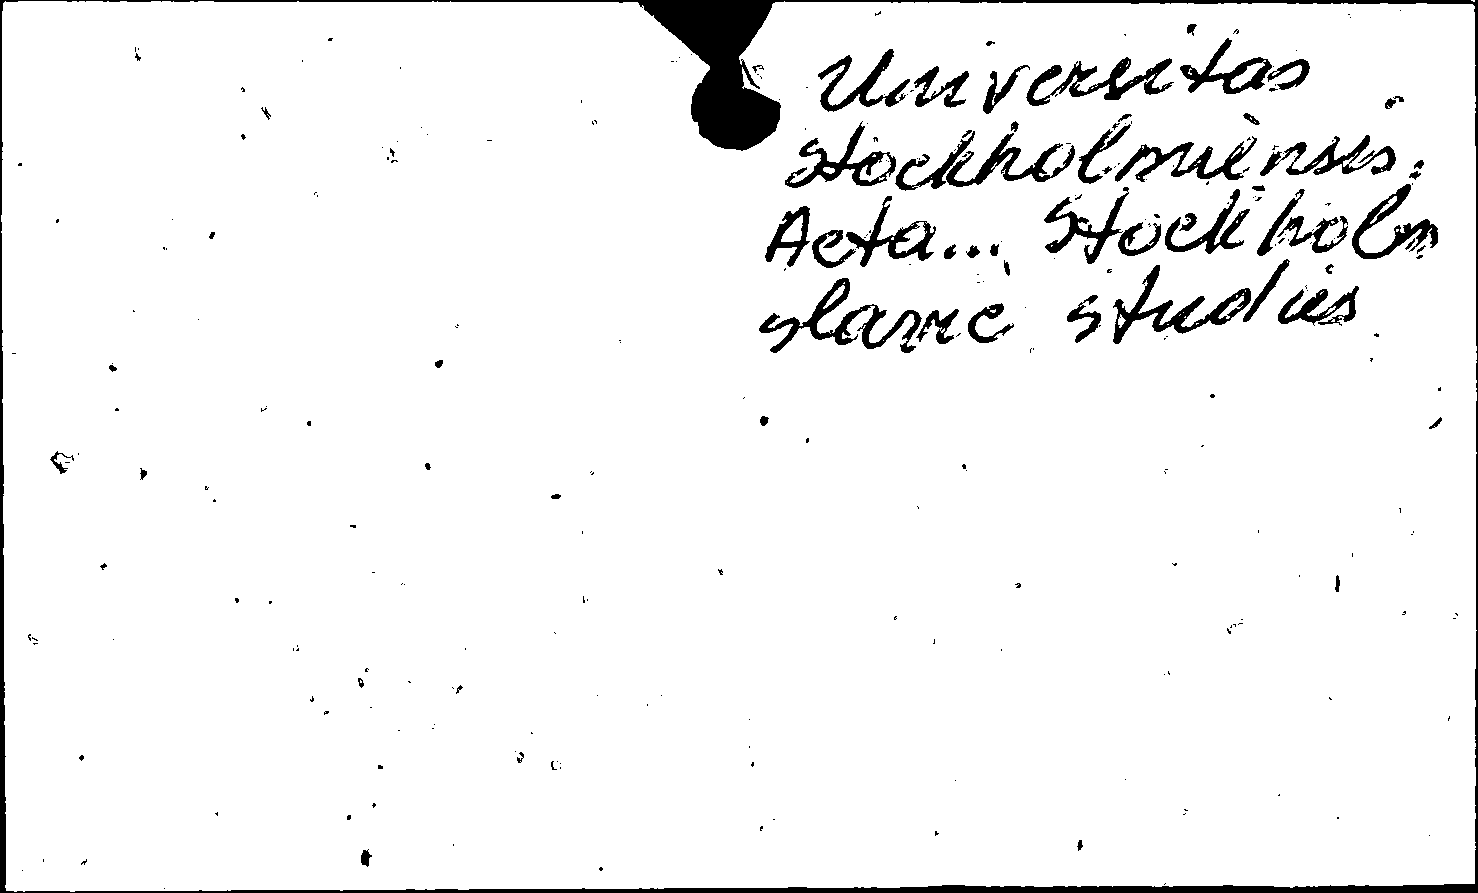 Universitas
Stockholmiensis.
Acta... Stockholm
slavic studies